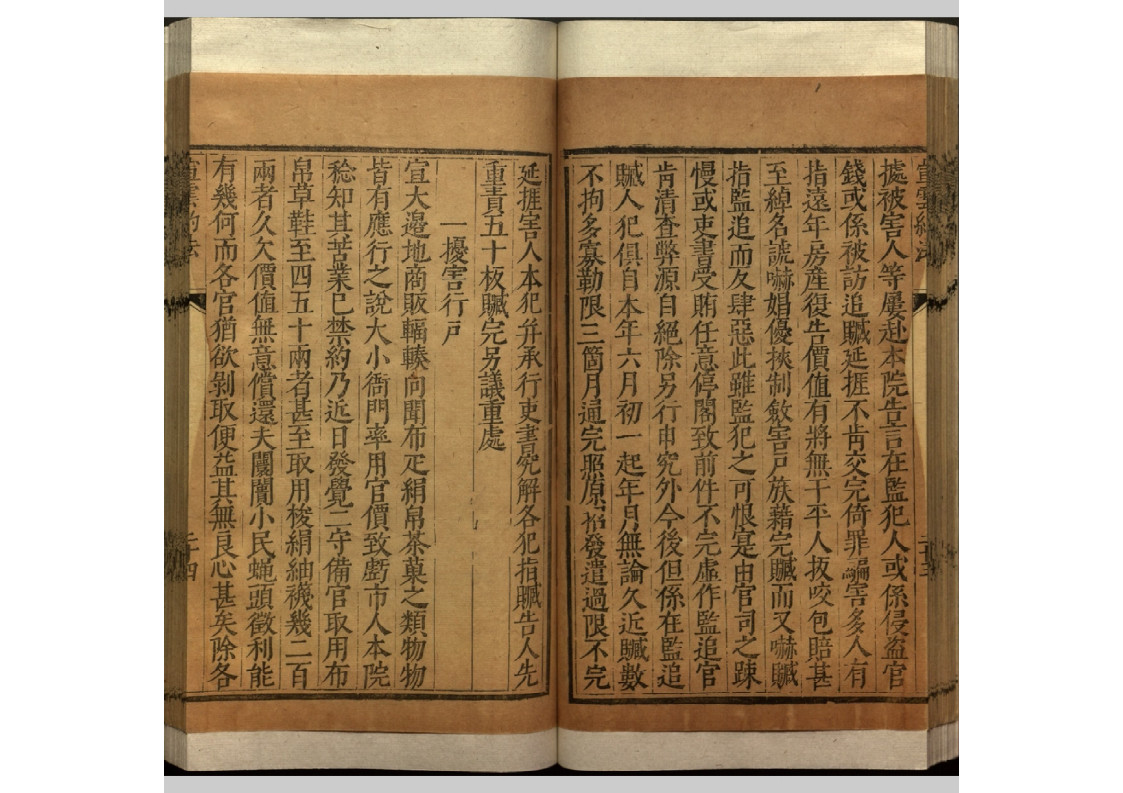 據被害人等屢赴本院告言在監犯人或係侵盜官
錢或係被訪追贓延捱不肯交完倚罪騙害多人有
指遠年房產復告價值有將無干平人扳咬包賠甚
至綽名諕嚇娼優挾制敵害戶族藉完贓而又嚇贓
指監追而反肆惡此雖監犯之可恨寔由官司之踈
慢或吏書受賄任意停閣致前件不完虛作監追官
肯清查弊源自絕除另行申究外今後但係在監追
贓人犯俱自本年六月初一起年月無論久近贓數
不拘多寡勒限三箇月通完照原招發遣過限不完
延捱害人本犯并承行吏書究解各犯指贓告人先
重責五十板贓完另議重處
一擾害行戶
宣大邊地商販輻輳向聞布疋絹帛茶菓之類物物
皆有應行之說大小衙門率用官價致虧市人本院
稔知其苦業已禁約乃近日發覺二守備官取用布
帛草鞋至四五十兩者甚至取用梭絹紬襪幾二百
兩者久欠價值無意償還夫闤闠小民蝇頭微利能
有幾何而各官猶欲剥取便益其無良心甚矣除各
二十四